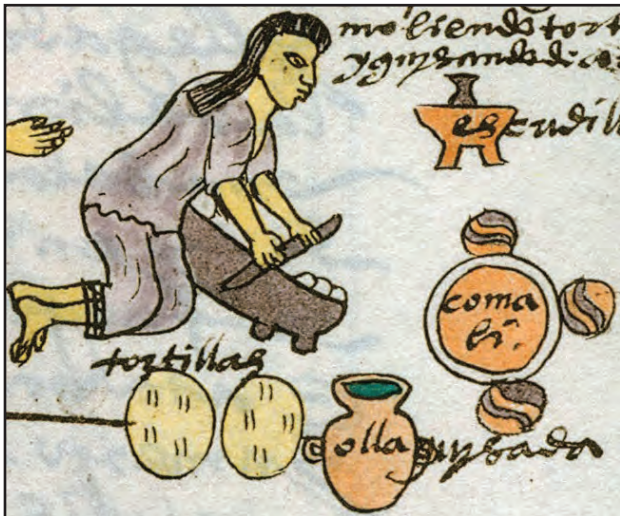 moliendo tort
escudill
coma
li.
tortillas
olla